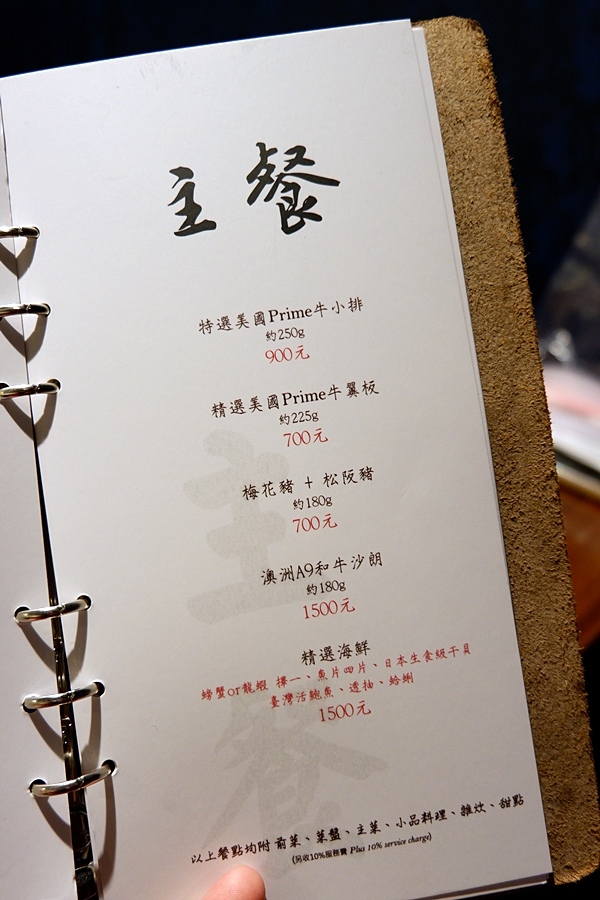 主餐
特選美國Prime牛小排
約250g
900元
精選美國Prime牛翼板
約225g
700元
梅花豬 + 松阪豬
約180g
700元
澳洲A9和牛沙朗
約180g
1500元
精選海鮮
螃蟹or龍蝦 擇一、魚片四片、日本生食級干貝
臺灣活鮑魚、透抽、蛤蜊
1500元
主餐
以上餐點均附 前菜、菜盤、主菜、小品料理、雜炊、甜點
(另收10%服務費 Plus 10% service charge)